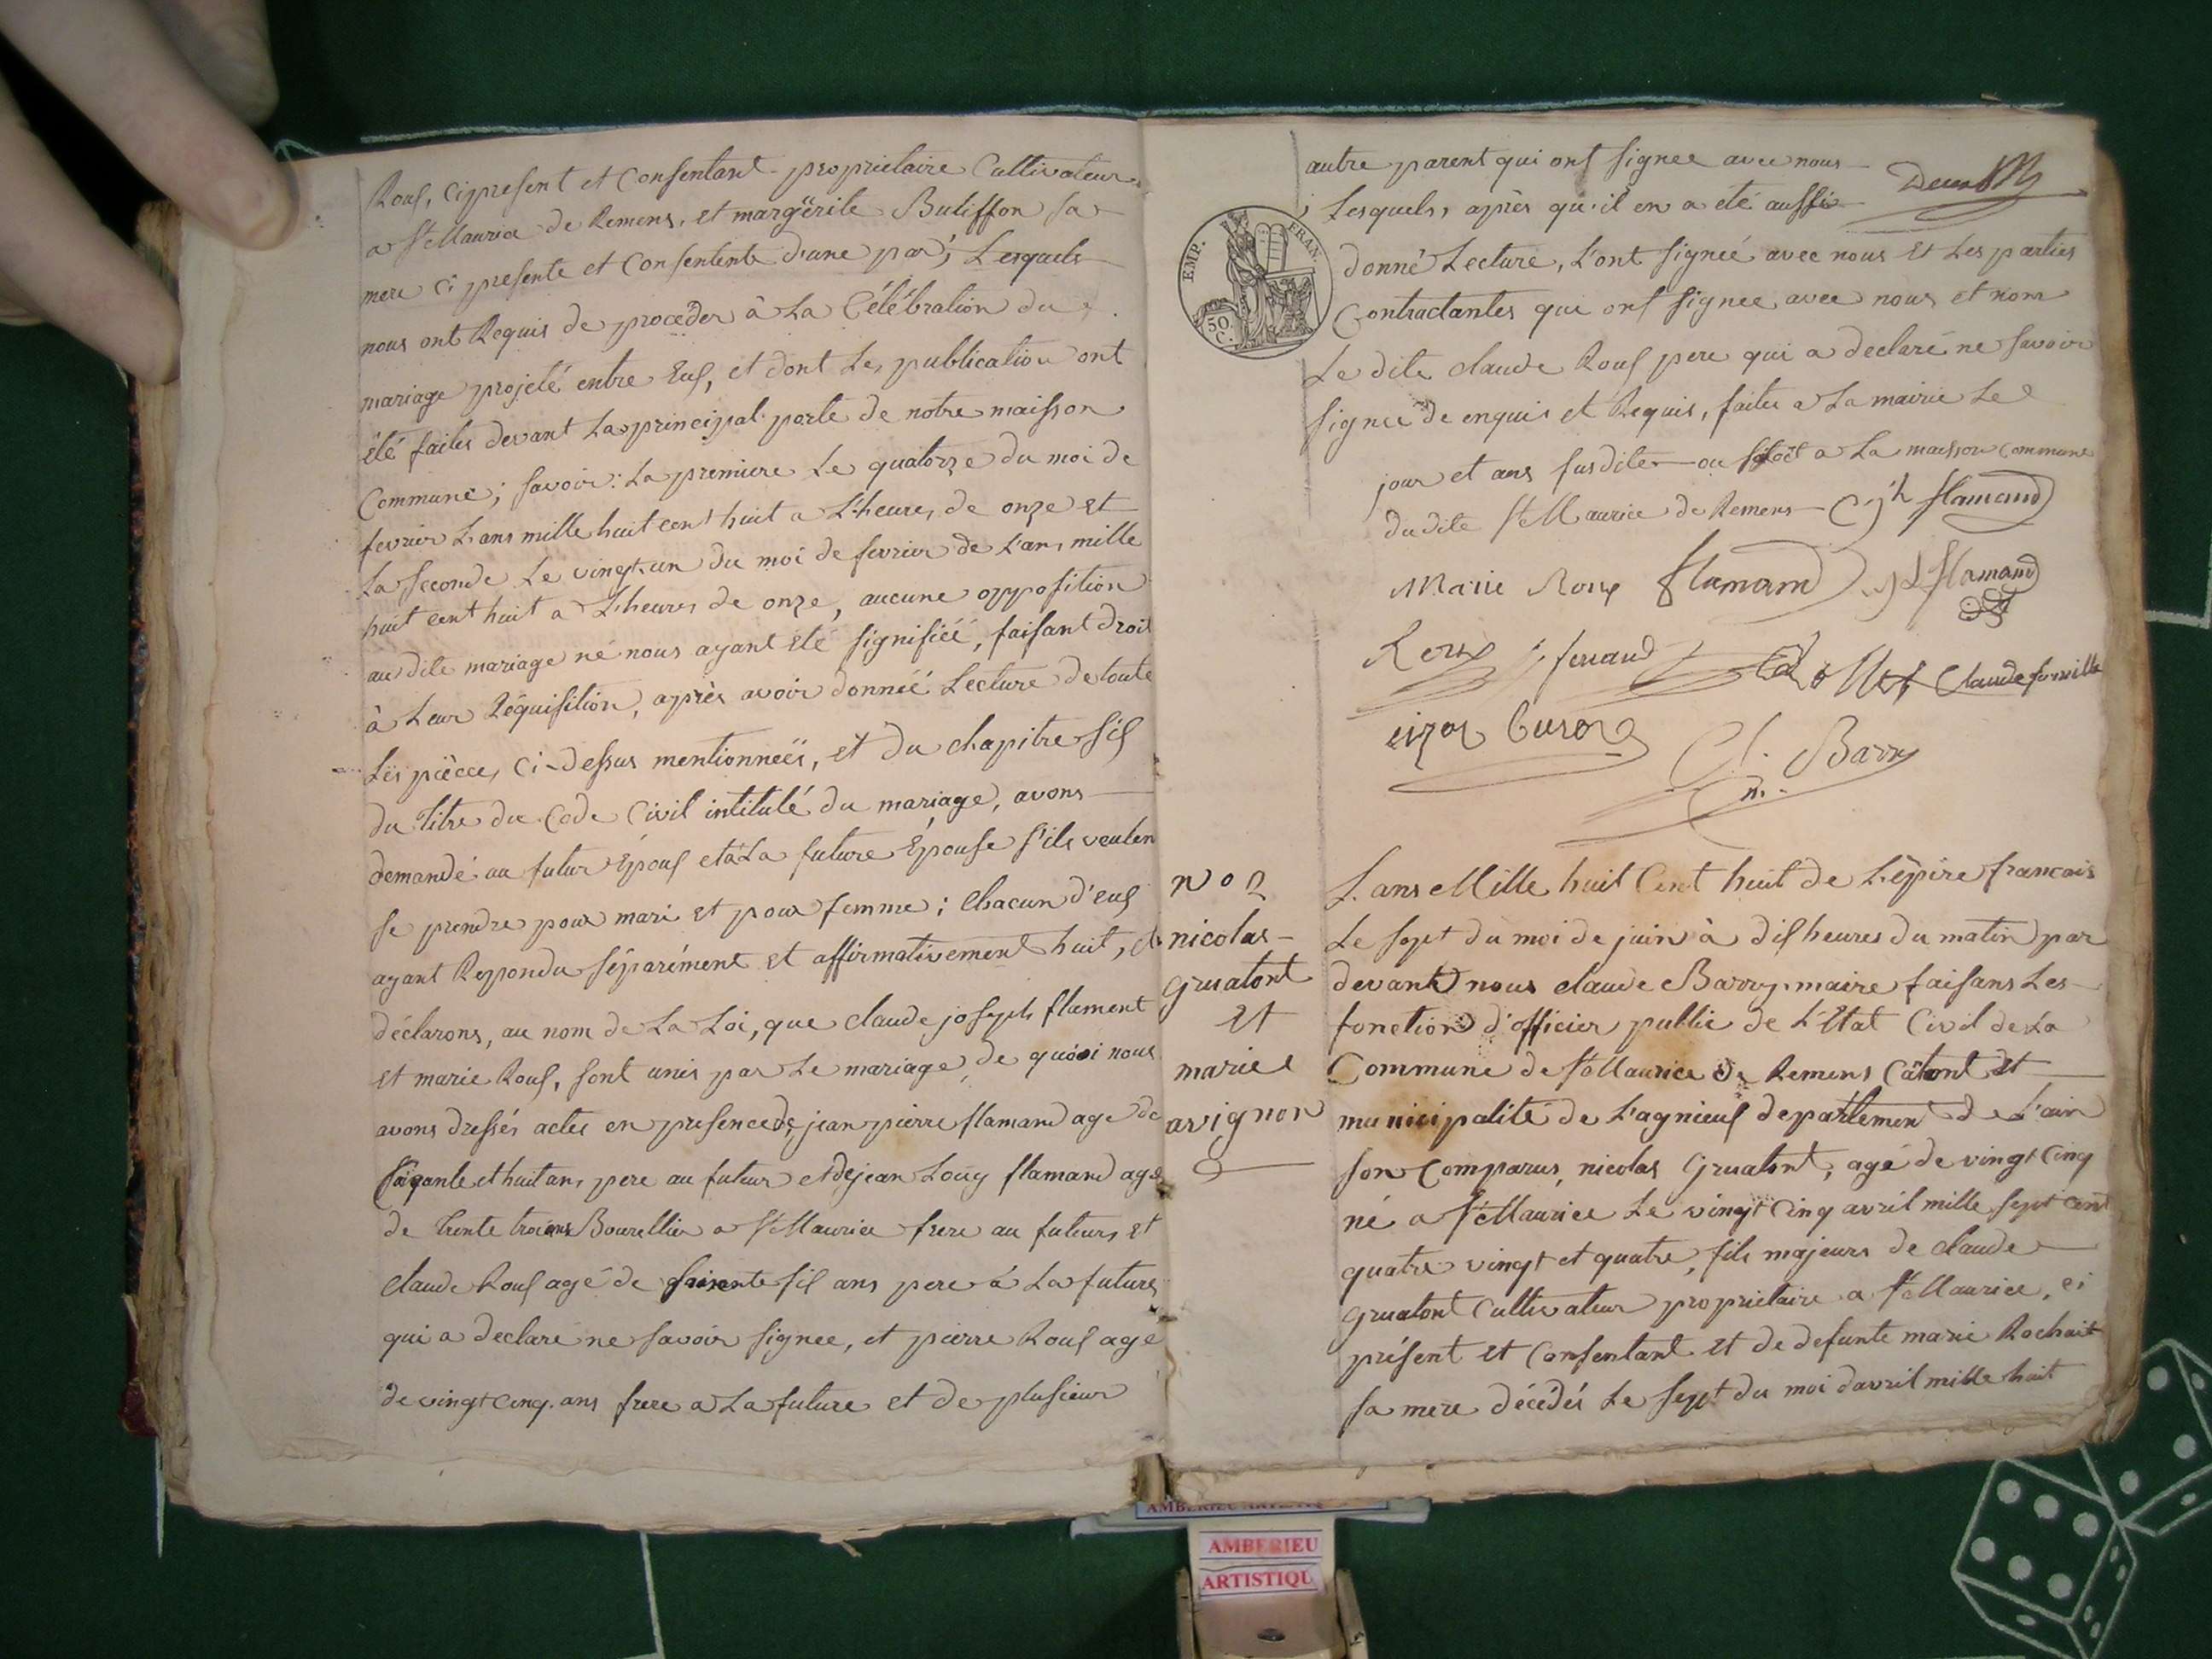 Rous, ci present et Consentant proprietaire Cultivateur
a St Maurice de Remens, et margüerite Butiffon sa
mere ci presente et Consentente d'une par; Lesquels
nous ont Requis de proceder à La Célébration du
mariage projeté entre Eus, et dont Les publication ont
été faites devant La principal porte de notre maisson
Commune; savoir: La premiere Le quatorze du moi de
fevrier L'ans mille huit cent huit a L'heures de onze et
La seconde Le vingt-un du moi de fevrier de L'ans mille
huit cent huit a L'heures de onze, aucune opposition
au dite mariage né nous ayant Eté signifiéé, faisant droit
à Leur Réquisition, après avoir donnéé Lecture de toute
Les pièces, Ci-dessus mentionnéés, et du chapitre sis
du titre du Code Civil intitulé du mariage, avons
demandé au futur Épous et à La future Épouse s'ils veulen
se prendre pour mari et pour femme; Chacun d'eus
ayant Repondu séparément et affirmativement huit,
déclarons, au nom de La Loi, que claude joseph flament
et marie Rous, sont unis par Le mariage, de quoi nous
avons dressés actes en presence de, jean pierre flamand age de
soixante et huit ans, pere au futur et de jean Louy flamand age
de trente trois ans Bourellier a St Maurice frere au futeurs et
claude Rous agé de soisente sis ans pere à La future
qui a declaré ne savoir signee, et pierre Rous age
de vingt cinq. ans frere a La future et de plusieur
autre parent qui ont signee avec nous
Lesquels, après qu'il en a été aussi
EMP. FRAN.
50.
C.
donné Lecture, L'ont signéé avec nous Et Les parties
Contractantes qui ont signee avec nous et nom
Le dite claude Rous pere qui a declaré ne savoir
signee de enquis et Requis, faites a La mairie Le
jour et ans susdite ou a La maisson Commune
du dite St Maurice de Remens C jh flamand
Marie Roux flamand j L flamand
Roux ferrand Claude
Cl. Barry
m.
non
nicolas
gruatont
et
marie
avignon
L'ans Mille huit Cent huit de L'épire francais
Le sept du moi de juin à dis heures du matin par
devant nous claude Barry maire faisans Les
fonction d'officier public de L'Etat Civil de La
Commune de St Maurice de Remens Câtont et
municipalité de L'agnieus departement de L'ain
son Comparus, nicolas gruatont, agé de vingt Cinq
né a St Maurice Le vingt Cinq avril mille sept cent
quatre vingt et quatre, fils majeurs de claude
gruatont Cultivateur proprietaire a St Maurice, ci
présent et Consentant et de defunte marie Rochait
sa mere décédés Le sept du moi d'avril mille huit
AMBERIEU
ARTISTIQU